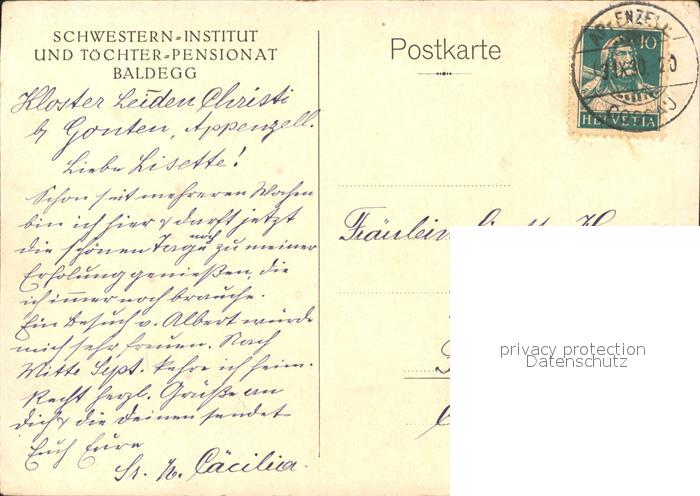 SCHWESTERN=INSTITUT
UND TÖCHTER=PENSIONAT
BALDEGG
Kloster Leiden Christi
b/ Gonten, Appenzell.
Liebe Lisette!
Schon seit mehreren Wochen
bin ich hier & darf jetzt
die schönen Tage noch zu meiner
Erholung genießen, die
ich immer noch brauche.
Ein Besuch v. Albert würde
mich sehr freuen. Nach
Mitte Sept. kehre ich heim.
Recht herzl. Grüße an
Dich & die Deinen sendet
Euch Eure
Sr. M. Cäcilia.
Postkarte
10
HELVETIA
APPENZELL
GOSSAU
Fräulein
privacy protection
Datenschutz